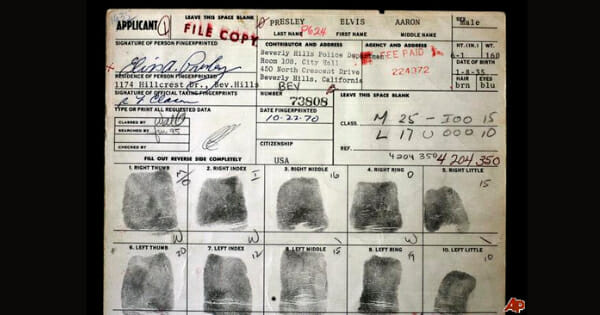 APPLICANT 1 LEAVE THIS SPACE BLANK PRESLEY ELVIS AARON Male
FILE COPY LAST NAME P624 FIRST NAME MIDDLE NAME
SIGNATURE OF PERSON FINGERPRINTED CONTRIBUTOR AND ADDRESS AGENCY AND ADDRESS HT. (IN.) WT.
Beverly Hills Police Department FEE PAID 6-1 168
Room 108, City Hall DATE OF BIRTH
RESIDENCE OF PERSON FINGERPRINTED 450 North Crescent Drive 224972 1-8-35
1174 Hillcrest Dr., Bev.Hills Beverly Hills, California HAIR EYES
SIGNATURE OF OFFICIAL TAKING FINGERPRINTS BEV brn blu
NUMBER 73808 LEAVE THIS SPACE BLANK
TYPE OR PRINT ALL REQUESTED DATA DATE FINGERPRINTED
CLASSIFIED BY 10-22-70 CLASS. M 25 - I00 15
SEARCHED BY L 17 U 000 10
CHECKED BY CITIZENSHIP REF.
FILL OUT REVERSE SIDE COMPLETELY USA 4204 350 4 204 350
1. RIGHT THUMB 2. RIGHT INDEX I 3. RIGHT MIDDLE 16 4. RIGHT RING O 5. RIGHT LITTLE 15
W W \ W \
6. LEFT THUMB 20 7. LEFT INDEX 12 8. LEFT MIDDLE 15 9. LEFT RING 10. LEFT LITTLE 10
AP